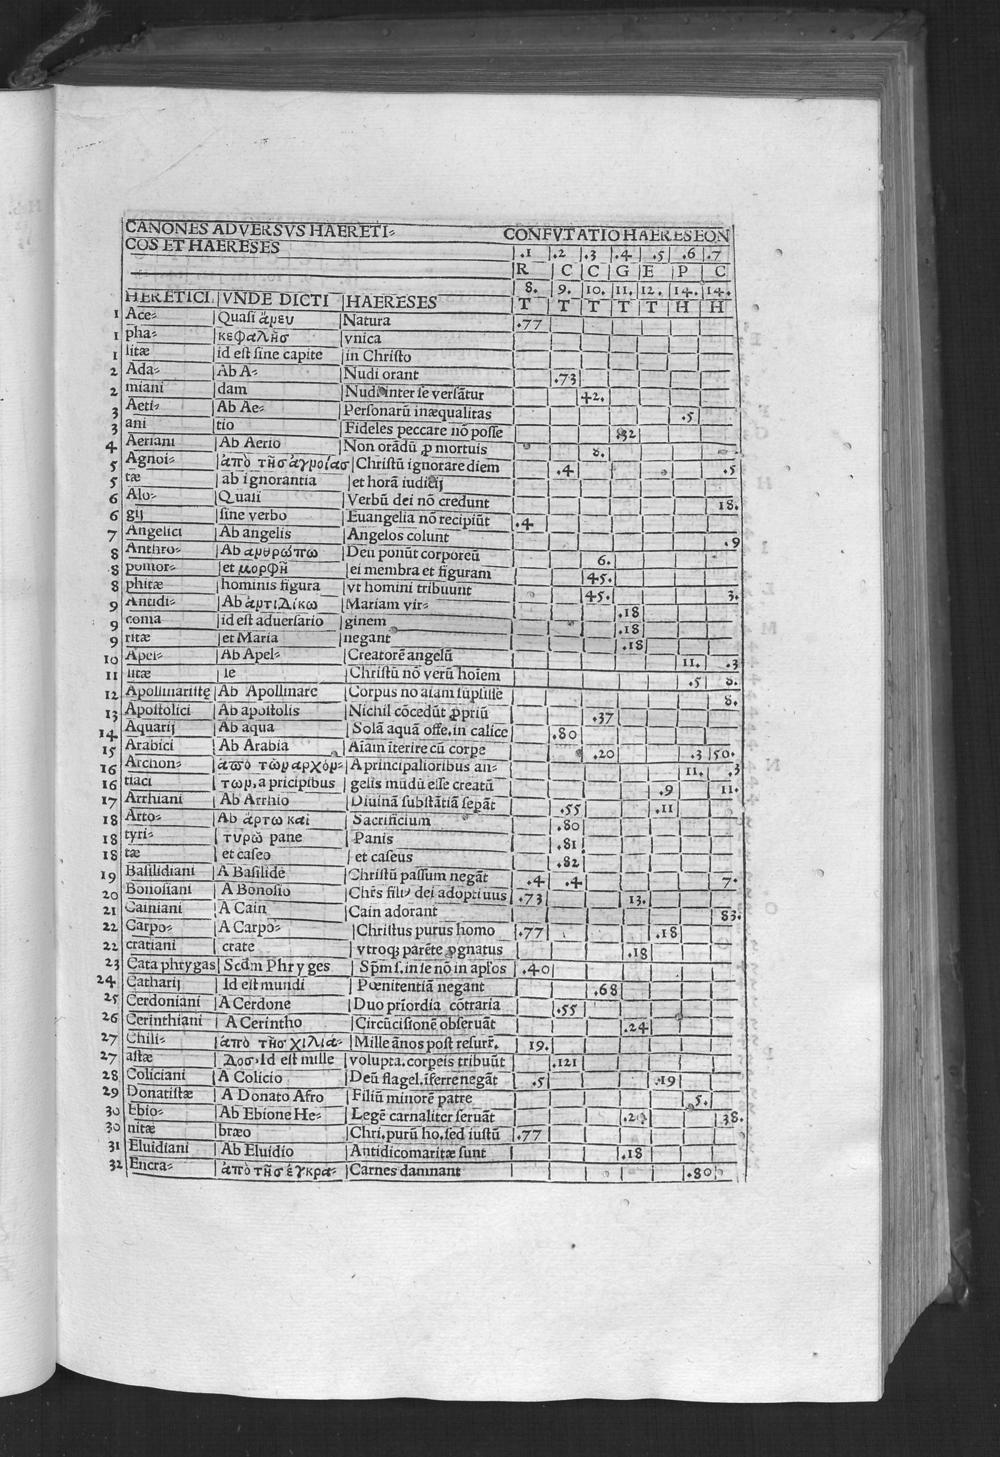 CANONES ADVERSVS HAERETI⸗ CONFVTATIO HAERESEON
COS ET HAERESES .1 .2 .3 .4 .5 .6 .7
R C C G E P C
8. 9. 10. 11. 12. 14. 14.
HERETICI VNDE DICTI HAERESES T T T T T H H
1 Ace⸗ Quasi ἀμευ Natura .77
1 pha⸗ κεφαλῆσ vnica
1 litæ id est sine capite in Christo
2 Ada⸗ Ab A⸗ Nudi orant .73
2 miani dam Nudi inter se versãtur 42.
3 Aeti⸗ Ab Ae⸗ Personarũ inæqualitas .5
3 ani tio Fideles peccare nõ posse .32
4 Aeriani Ab Aerio Non orãdũ ꝓ mortuis 8.
5 Agnoi⸗ ἀπὸ τῆσ ἀγμοίας Christũ ignorare diem .4 .5
5 tæ ab ignorantia et horã iudicij
6 Alo⸗ Quasi Verbũ dei nõ credunt 18.
6 gij sine verbo Euangelia nõ recipiũt .4
7 Angelici Ab angelis Angelos colunt .9
8 Anthro⸗ Ab αμθρώπω Deũ ponũt corporeũ 6.
8 pomor⸗ et μορφῆ ei membra et figuram 45.
8 phitæ hominis figura vt homini tribuunt 45. 3.
9 Antidi⸗ Ab ἀμτιδίκω Mariam vir⸗ .18
9 coma id est aduersario ginem .18
9 ritæ et Maria negant .18
10 Apel⸗ Ab Apel⸗ Creatorẽ angelũ 11. .3
11 litæ le Christũ nõ verũ hoĩem .5 8.
12 Apollinaristę Ab Apollinare Corpus no aĩam sũpsisse 8.
13 Apostolici Ab apostolis Nichil cõcedũt ꝓpriũ .37
14 Aquarij Ab aqua Solã aquã offe. in calice .80
15 Arabici Ab Arabia Aĩam ĩterire cũ corpe .20 .3 50.
16 Archon⸗ ἀπὸ τῶμ αρχόμ⸗ A principalioribus an⸗ 11. .3
16 tiaci τωμ, a pricipibus gelis mũdũ esse creatũ .9 11.
17 Arrhiani Ab Arrhio Diuinã substãtiã sepãt .55 .11
18 Arto⸗ Ab ἄρτω καί Sacrificium .80
18 tyri⸗ τυρῷ pane Panis .81
18 tæ et caseo et caseus .82
19 Basilidiani A Basilide Christũ passum negãt .4 .4 7.
20 Bonosiani A Bonosio dei adoptiuus .73 13.
21 Cainiani A Cain Cain adorant 83.
22 Carpo⸗ A Carpo⸗ Christus purus homo .77 .18
22 cratiani crate vtroqꝫ parẽte ꝓgnatus .18
23 Cata phrygas Scdm Phryges Spm s. in se nõ in aplos .40
24 Catharij Id est mundi Pœnitentiã negant .68
25 Cerdoniani A Cerdone Duo priordia cõtraria .55
26 Cerinthiani A Cerintho Circũcisionẽ obseruãt .24
27 Chili⸗ ἀπὸ τῆσ χιλια⸗ Mille ãnos post resurr. 19.
27 astæ δοσ. Id est mille volupta. corpeis tribuũt .121
28 Coliciani A Colicio Deũ flagel. ĩferre negãt .5 .19
29 Donatistæ A Donato Afro Filiũ minorẽ patre 5.
30 Ebio⸗ Ab Ebione He⸗ Legẽ carnaliter seruãt 38.
30 nitæ bræo Chri. purũ ho. sed iustũ .77
31 Eluidiani Ab Eluidio Antidicomaritæ sunt .18
32 Encra⸗ ἀπὸ τῆσ ἐγκρα⸗ Carnes damnant .80